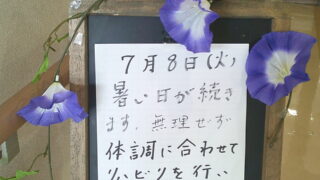 7月8日(火)
暑い日が続き
ます。無理せず
体調に合わせて
リハビリを行い